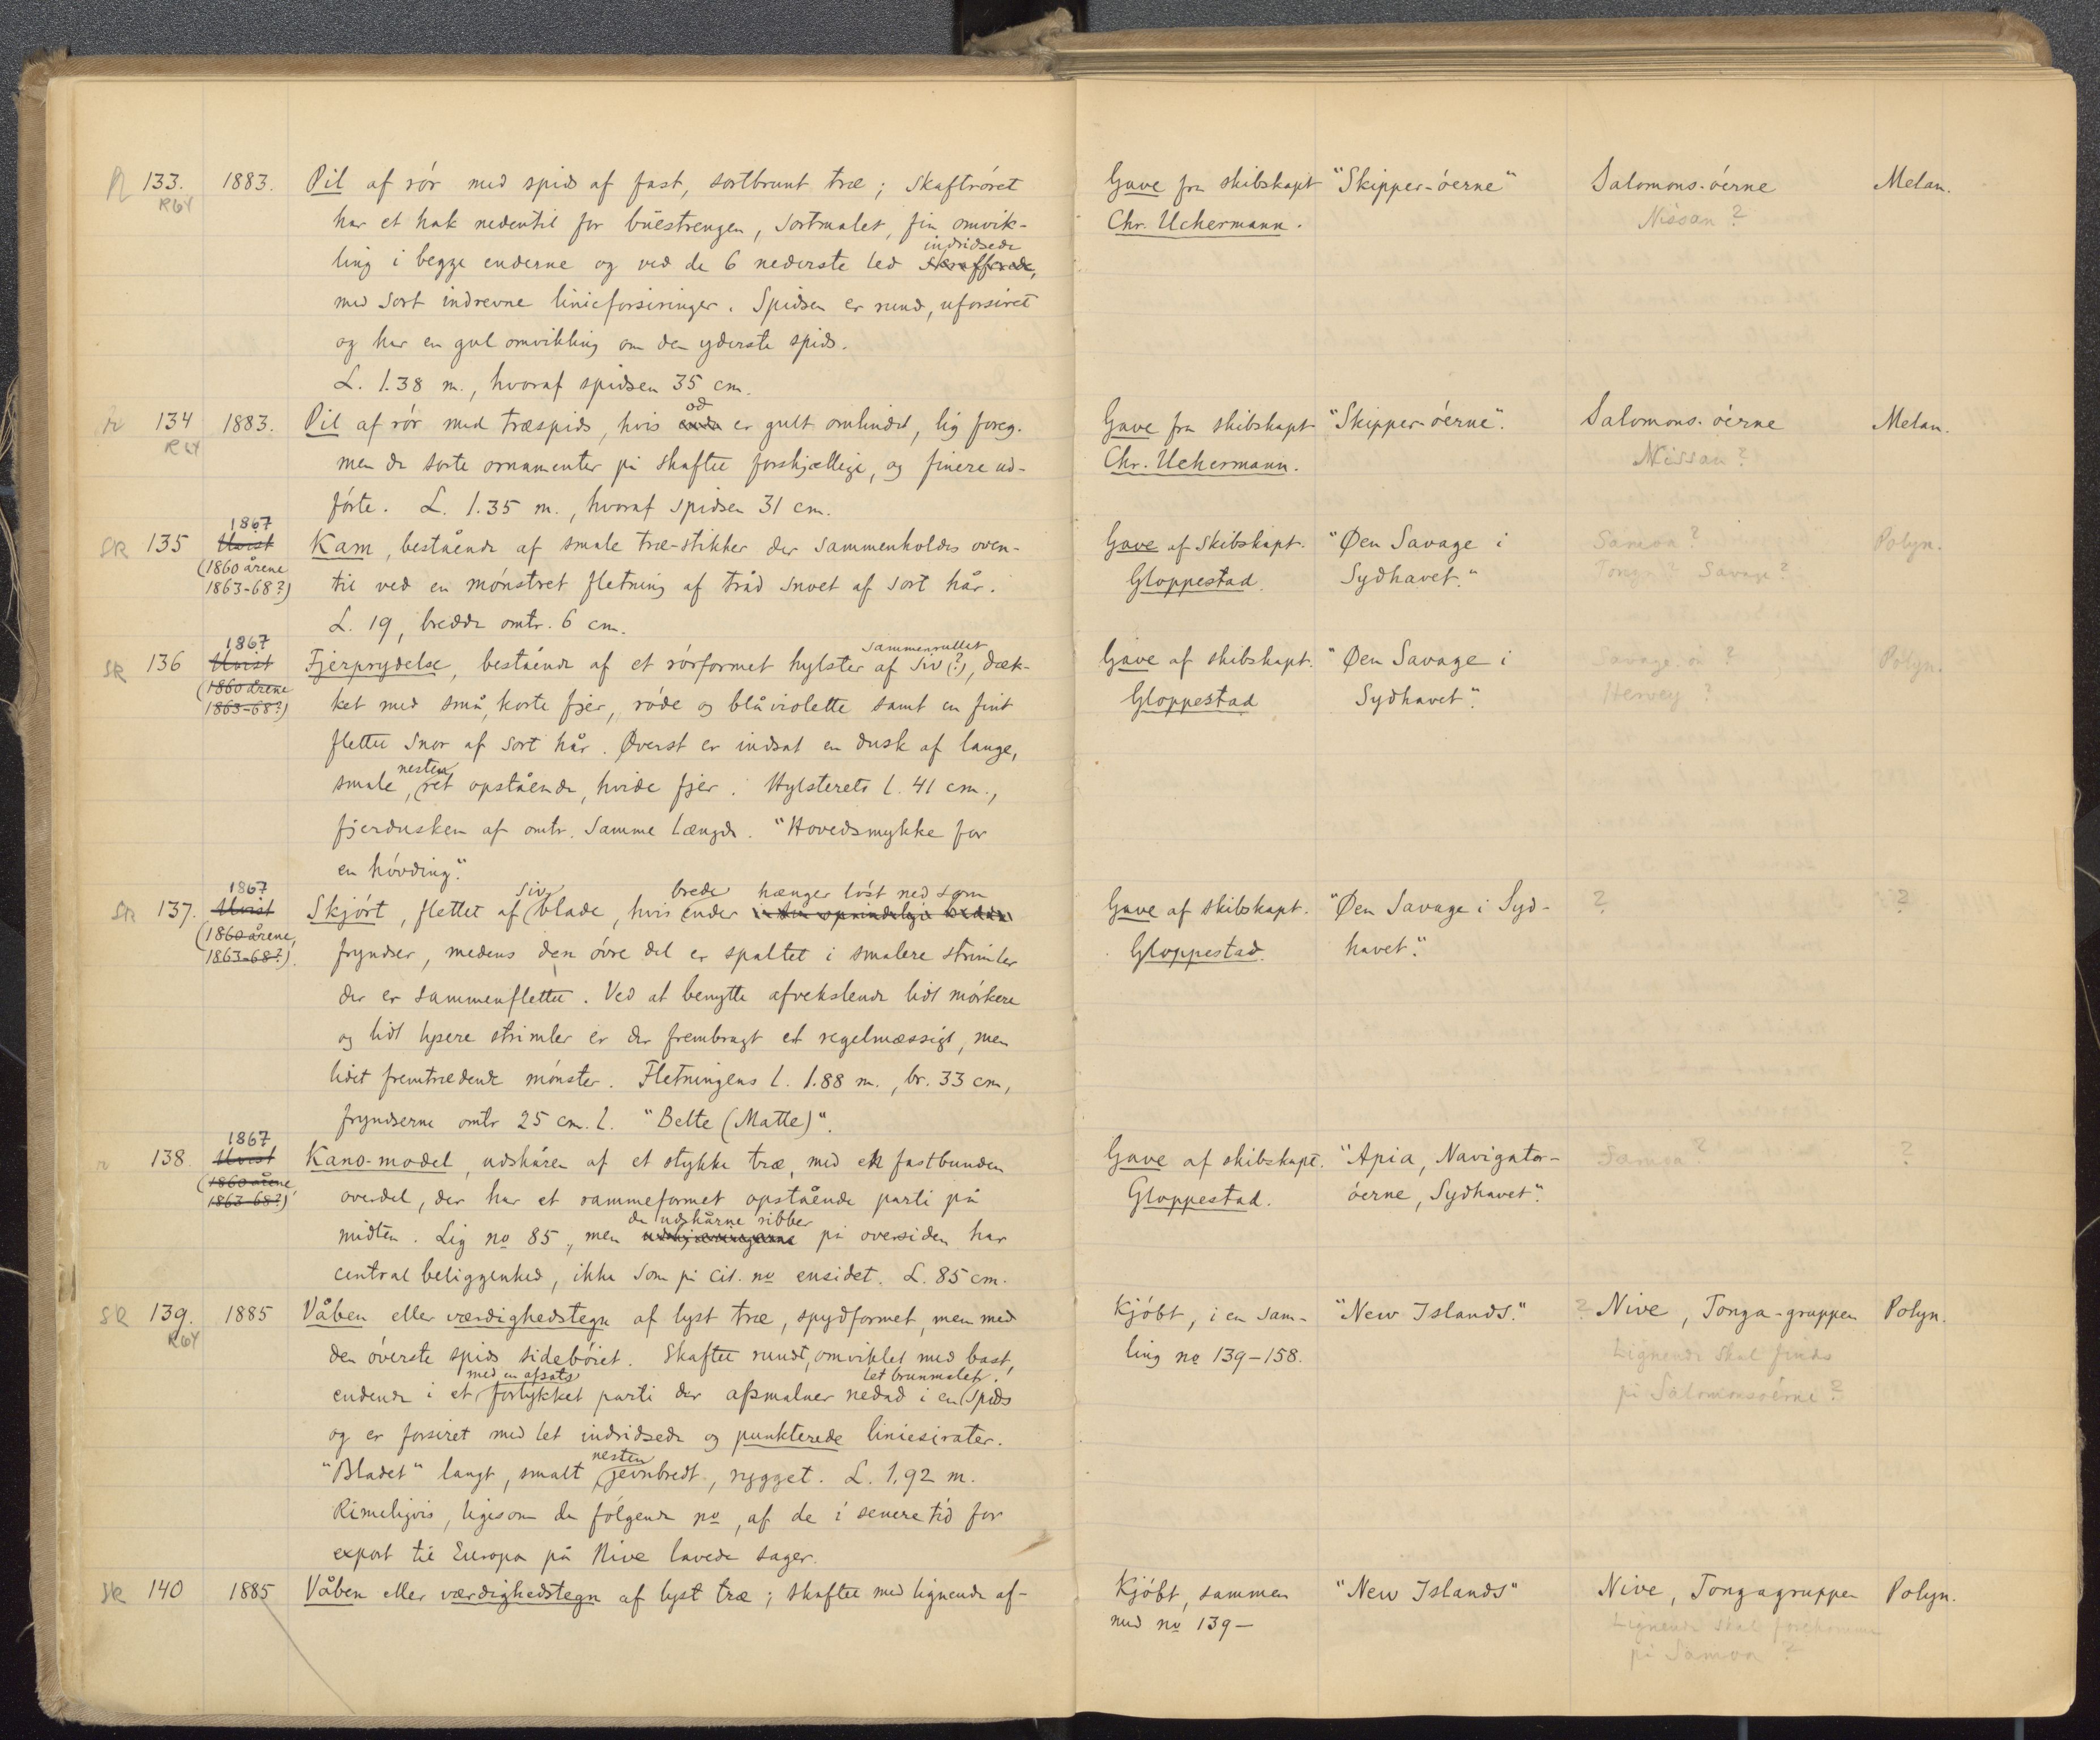 R 133. 1883. Pil af rör med spids af fast, sortbrunt træ; Skaftröret
R64 har et hak nedentil for büestrengen, sortmalet, fin omvik-
ling i begge enderne og ved de 6 nederste led indridsede skrafferede,
med sort indrevne linieforsiringer. Spidsen er rund, uforsiret
og har en gul omvikling om den yderste spids.
L. 1.38 m., hvoraf spidsen 35 cm.
Gave fra skibskapt
Chr. Uchermann.
"Skipper-öerne"
Salomons-öerne
Nissan?
Melan.
R 134 1883. Pil af rör med træspids, hvis od ende er gult omlindet, lig foreg.
R64 men de sorte ornamenter på skaftet forskjællige, og finere ud-
förte. L. 1.35 m., hvoraf spidsen 31 cm.
Gave fra skibskapt
Chr. Uchermann.
"Skipper-öerne".
Salomons-öerne
Nissan?
Melan.
1867
SR 135 Uvist Kam, bestående af smale træ-stikker der sammenholdes oven-
(1860 årene
1863-68?) til ved en mönstret fletning af tråd snoet af sort hår.
L. 19, bredde omtr. 6 cm.
Gave af skibskapt.
Gloppestad.
"Øen Savage i
Sydhavet."
Samoa?
Tonga? Savage?
Polyn.
1867
SR 136 Uvist Fjerprydelse, bestående af et rörformet hylster af sammenrullet siv (?), dæk-
(1860 årene
1863-68?) ket med små, korte fjer, röde og blåviolette samt en fint
flettet snor af sort hår. Øverst er indsat en dusk af lange,
smale, nesten ret opstående, hvide fjer. Hylsterets l. 41 cm.,
fjerdusken af omtr. samme længde. "Hovedsmykke for
en hövding".
Gave af skibskapt.
Gloppestad
"Øen Savage i
Sydhavet".
Savage-ön?
Hervey?
Polyn.
1867
SR 137. Uvist Skjört, flettet af siv blade, hvis brede ender hænger löst ned som
(1860 årene,
1863-68?). fryndser, medens den övre del er spaltet i smalere strimler
der er sammenflettet. Ved at benytte afvekslende lidt mörkere
og lidt lysere strimler er der frembragt et regelmæssigt, men
lidet fremtrædende mönster. Fletningens l. 1.88 m., br. 33 cm,
fryndserne omtr 25 cm. l. "Belte (Matte)".
Gave af skibskapt.
Gloppestad.
"Øen Savage i Syd-
havet".
?
?
1867
r 138. Uvist Kano-model, udskåren af et stykke træ, med en fastbunden
(1860 årene,
1863-68?) overdel, der har et rammeformet opstående parti på
midten. Lig no 85, men de udskårne ribber udskjæringerne på oversiden har
central beliggenhed, ikke som på cit. no ensidet. L. 85 cm.
Gave af skibskapt.
Gloppestad.
"Apia, Navigator-
öerne, Sydhavet".
Samoa?
?
SR 139. 1885 Våben eller værdighedstegn af lyst træ, spydformet, men med
R64 den överste spids sideböiet. Skaftet rundt, omviklet med bast,
endende i et med en afsats fortykket parti der afsmalner nedad i en let brunmalet spids
og er forsiret med let indridsede og punkterede liniesirater.
"Bladet" langt, smalt nesten jevnbredt, rygget. L. 1.92 m.
Rimeligvis, ligesom de fölgende no, af de i senere tid for
export til Europa på Nive lavede sager.
Kjöbt, i en sam-
ling no 139-158.
"New Islands."
? Nive, Tonga-gruppen
Lignende skal findes
på Salomonsöerne?
Polyn.
SR 140 1885 Våben eller værdighedstegn af lyst træ; skaftet med lignende af-
Kjöbt, sammen
med no 139-
"New Islands"
Nive, Tongagruppen
Lignende skal forekomme
på Samoa?
Polyn.